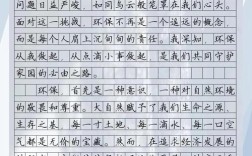 问题日益严峻,如同乌云般笼罩在我们心头。
面对这一挑战,环保不再是一个遥远的概念,
而是每个人肩上沉甸甸的责任。我深知,环保
从我做起,从点滴小事做起,是我们共同守护
家园的必由之路。
环保,首先是一种意识,一种对自然环境
的敬畏和尊重。大自然赋予了我们生命之源、
生存之基,每一寸土地、每一滴水、每一口空
气都是无价的宝藏。然而,在追求经济发展的